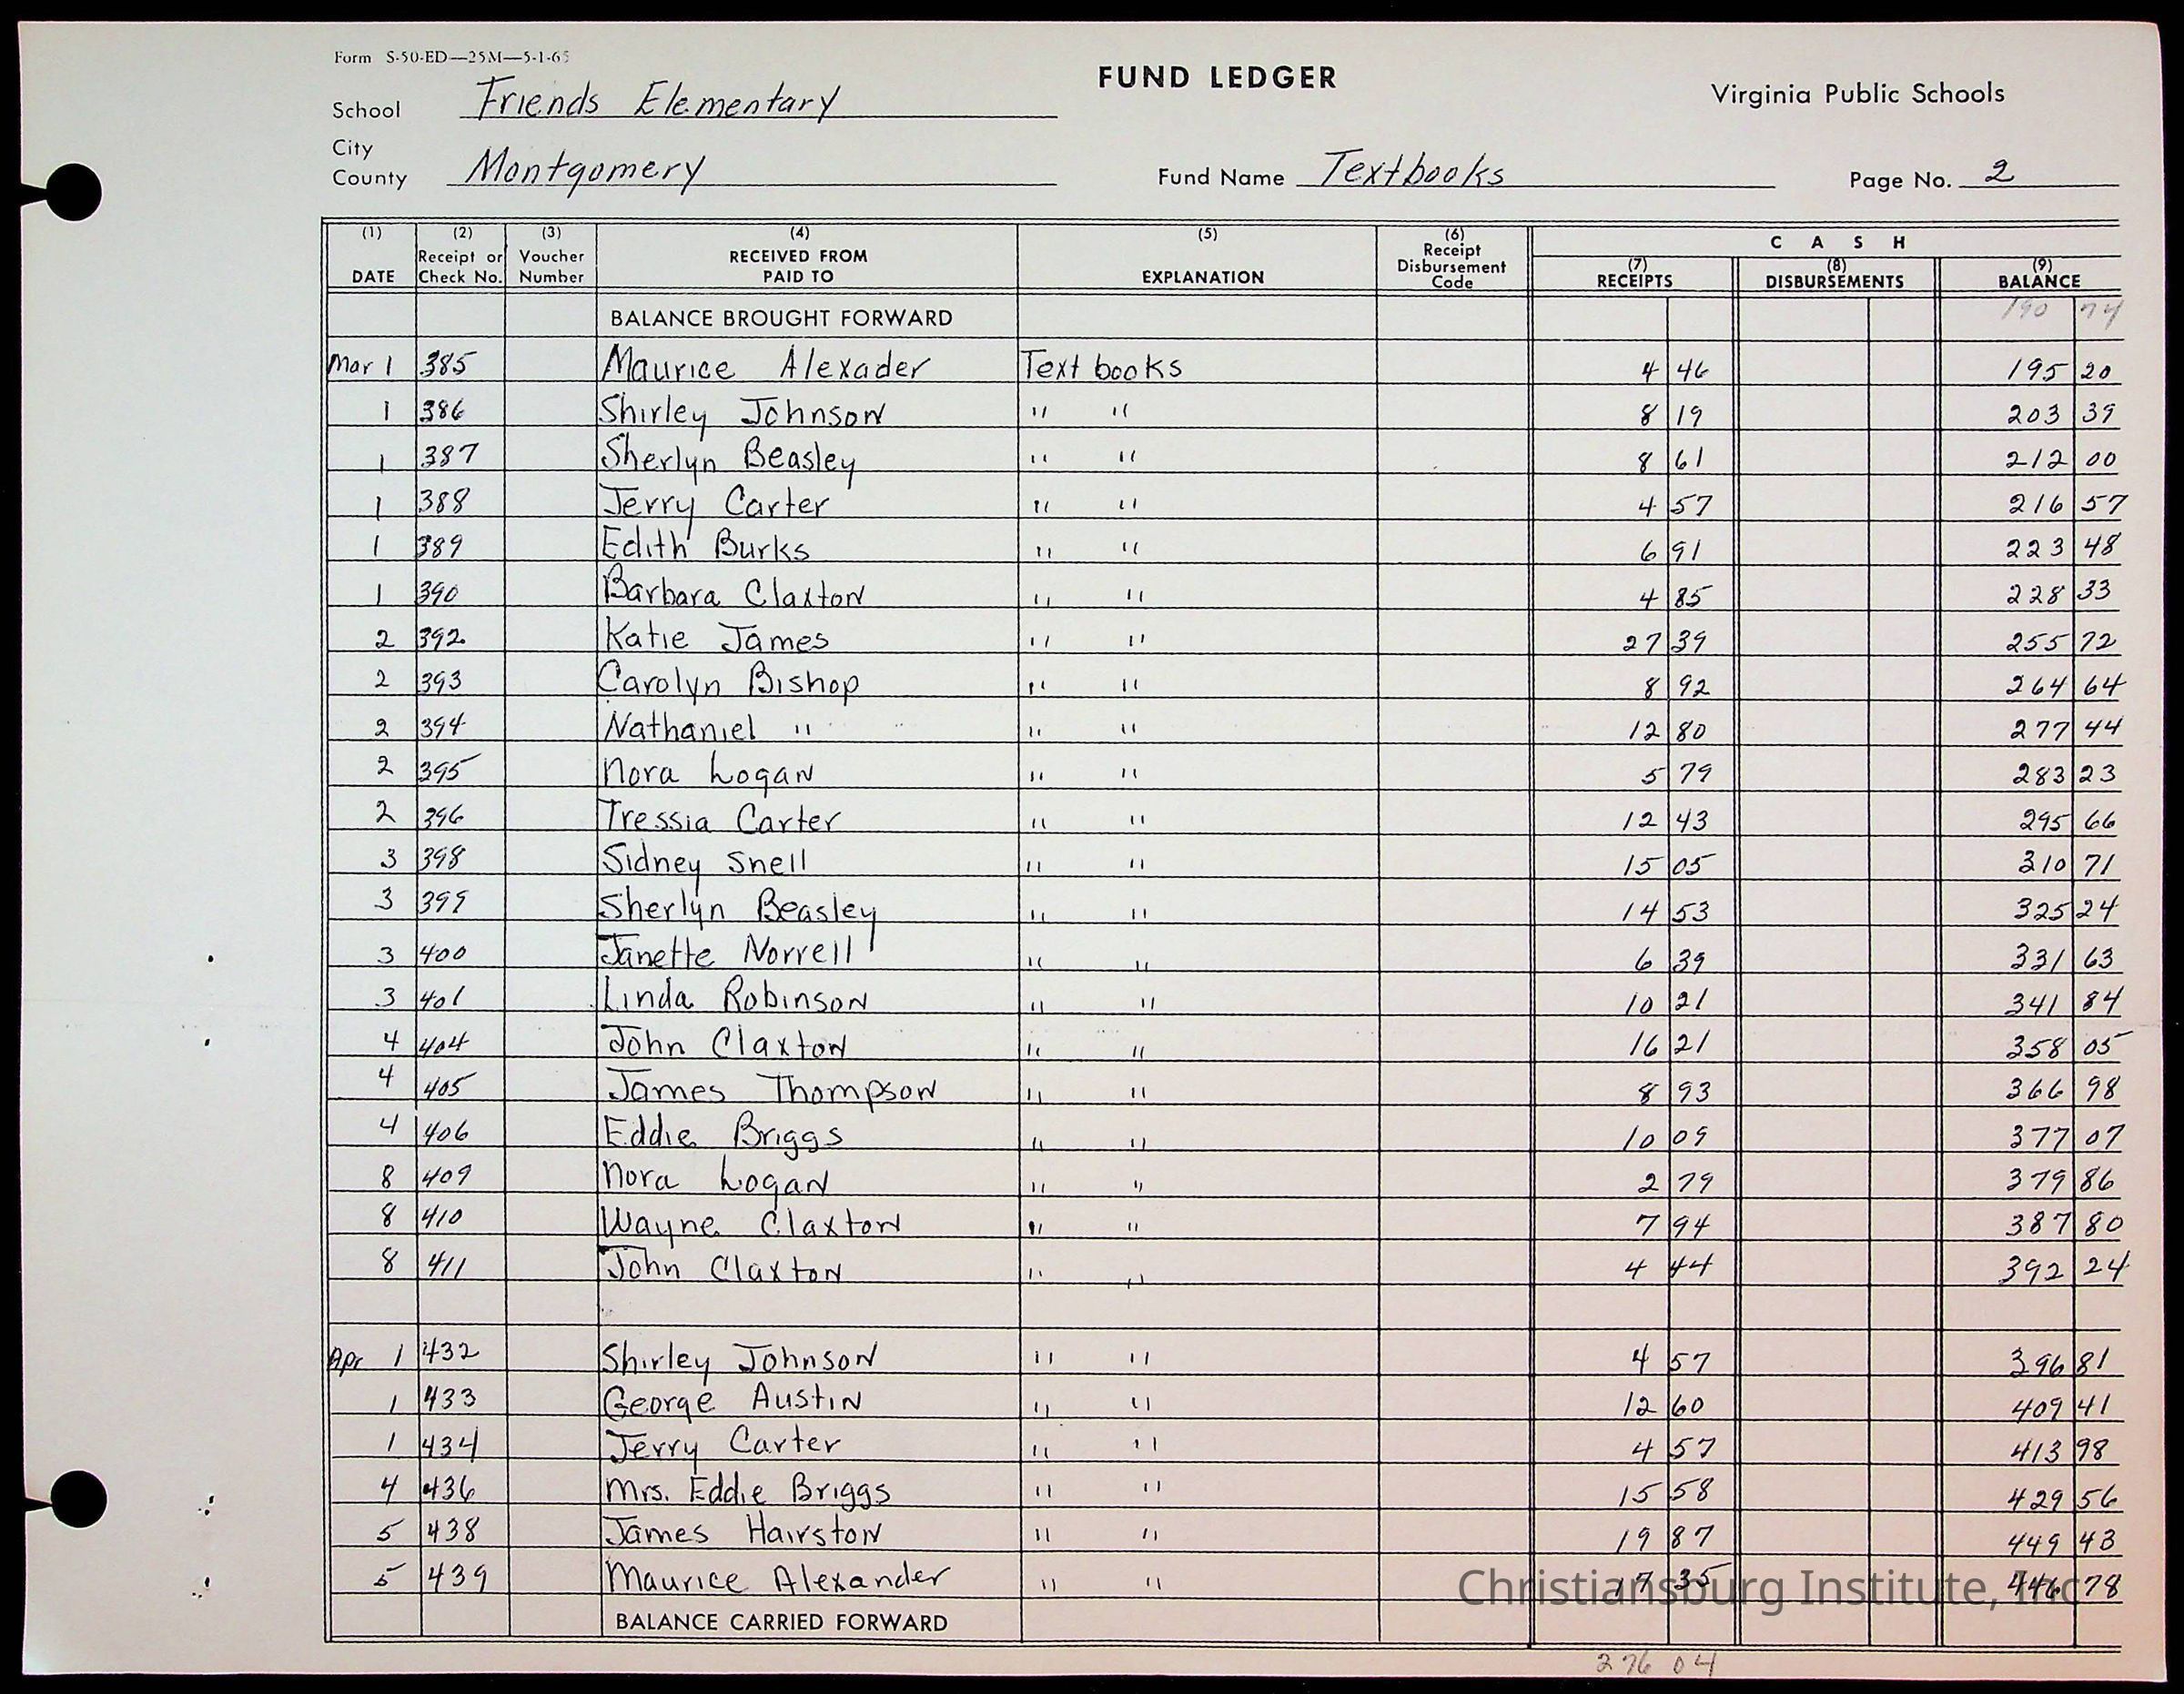 Form S-50-ED—25M—5-1-65
FUND LEDGER
Virginia Public Schools
School Friends Elementary
City
County Montgomery
Fund Name Textbooks
Page No. 2
(1) DATE (2) Receipt or Check No. (3) Voucher Number (4) RECEIVED FROM PAID TO (5) EXPLANATION (6) Receipt Disbursement Code CASH (7) RECEIPTS (8) DISBURSEMENTS (9) BALANCE
BALANCE BROUGHT FORWARD 190 74
Mar 1 385 Maurice Alexader Text books 4 46 195 20
1 386 Shirley Johnson " " 8 19 203 39
1 387 Sherlyn Beasley " " 8 61 212 00
1 388 Jerry Carter " " 4 57 216 57
1 389 Edith Burks " " 6 91 223 48
1 390 Barbara Claxton " " 4 85 228 33
2 392 Katie James " " 27 39 255 72
2 393 Carolyn Bishop " " 8 92 264 64
2 394 Nathaniel " " " 12 80 277 44
2 395 Nora Logan " " 5 79 283 23
2 396 Tressia Carter " " 12 43 295 66
3 398 Sidney Snell " " 15 05 310 71
3 399 Sherlyn Beasley " " 14 53 325 24
3 400 Janette Norrell " " 6 39 331 63
3 401 Linda Robinson " " 10 21 341 84
4 404 John Claxton " " 16 21 358 05
4 405 James Thompson " " 8 93 366 98
4 406 Eddie Briggs " " 10 09 377 07
8 409 Nora Logan " " 2 79 379 86
8 410 Wayne Claxton " " 7 94 387 80
8 411 John Claxton " " 4 44 392 24
Apr 1 432 Shirley Johnson " " 4 57 396 81
1 433 George Austin " " 12 60 409 41
1 434 Jerry Carter " " 4 57 413 98
4 436 Mrs. Eddie Briggs " " 15 58 429 56
5 438 James Hairston " " 19 87 449 43
5 439 Maurice Alexander " " 17 35 446 78
Christiansburg Institute, Inc
BALANCE CARRIED FORWARD
276 04